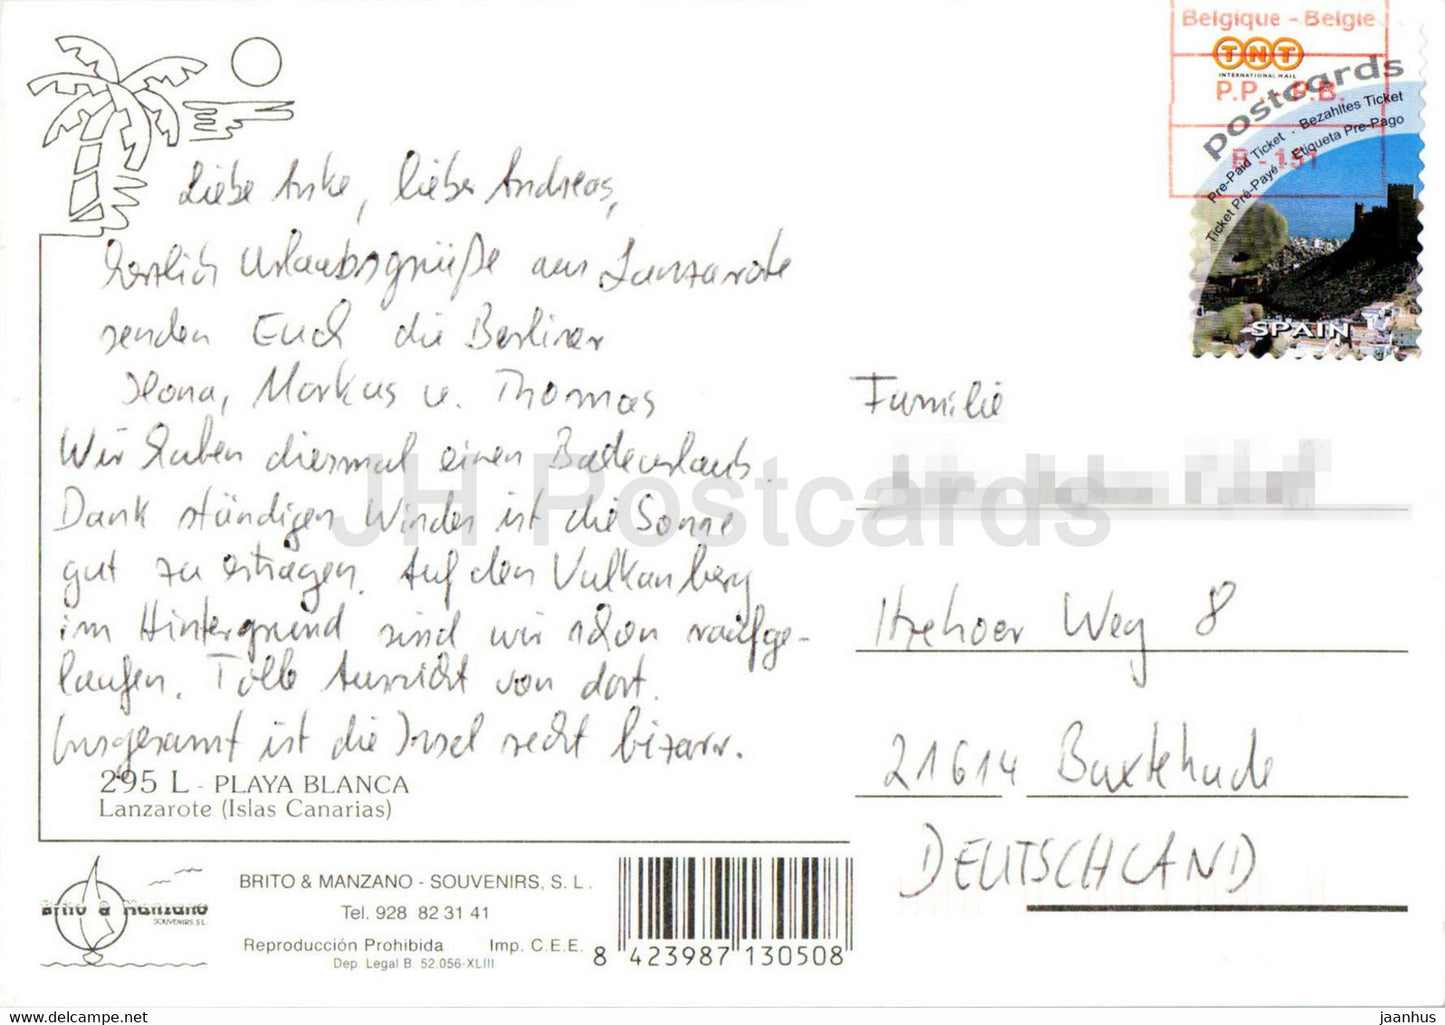 Belgique - Belgie
TNT
INTERNATIONAL MAIL
P.P. - P.B.
B - 151
postcards
Pre-Paid Ticket · Bezahltes Ticket
Ticket Pré-Payé · Etiqueta Pre-Pago
SPAIN
Liebe Anke, lieber Andreas,
herzlich Urlaubsgrüße aus Lanzarote
senden Euch die Berliner
Ilona, Markus u. Thomas
Wir haben diesmal einen Badeurlaub.
Dank ständigen Windes ist die Sonne
gut zu ertragen. Auf den Vulkanberg
im Hintergrund sind wir schon raufge-
laufen. Tolle Aussicht von dort.
Insgesamt ist die Insel recht bizarr.
295 L - PLAYA BLANCA
Lanzarote (Islas Canarias)
Familie
Itzehoer Weg 8
21614 Buxtehude
DEUTSCHLAND
Brito & Manzano
SOUVENIRS S.L.
BRITO & MANZANO - SOUVENIRS, S. L.
Tel. 928 82 31 41
Reproducción Prohibida Imp. C.E.E.
Dep. Legal B. 52.056-XLIII
8 423987 130508
JH Postcards
hippostcard.com
jaanhus